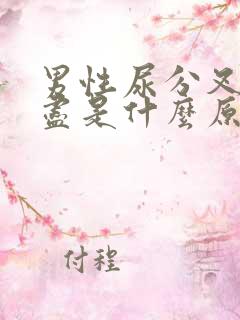 男性尿分叉
盡是什麼原
付程